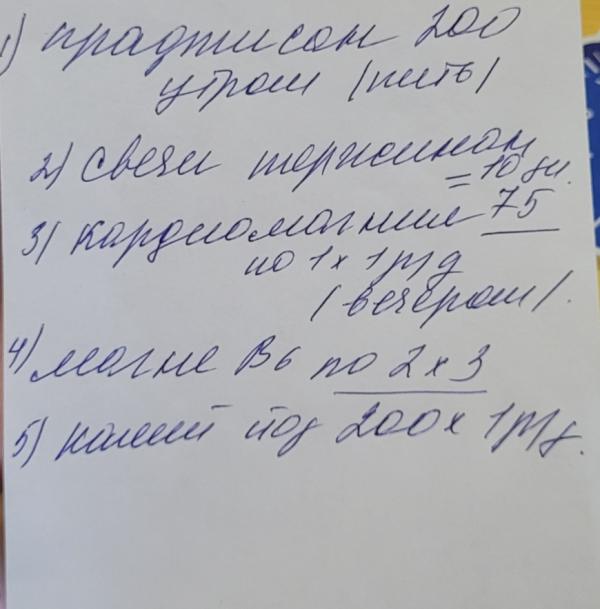 1) праджисан 200
утром (пить)
2) свечи тержинан
= 10 дн.
3) кардиомагнил 75
по 1 х 1 р/д
(вечером).
4) магне В6 по 2 х 3
5) калий йод 200 х 1 р/д.